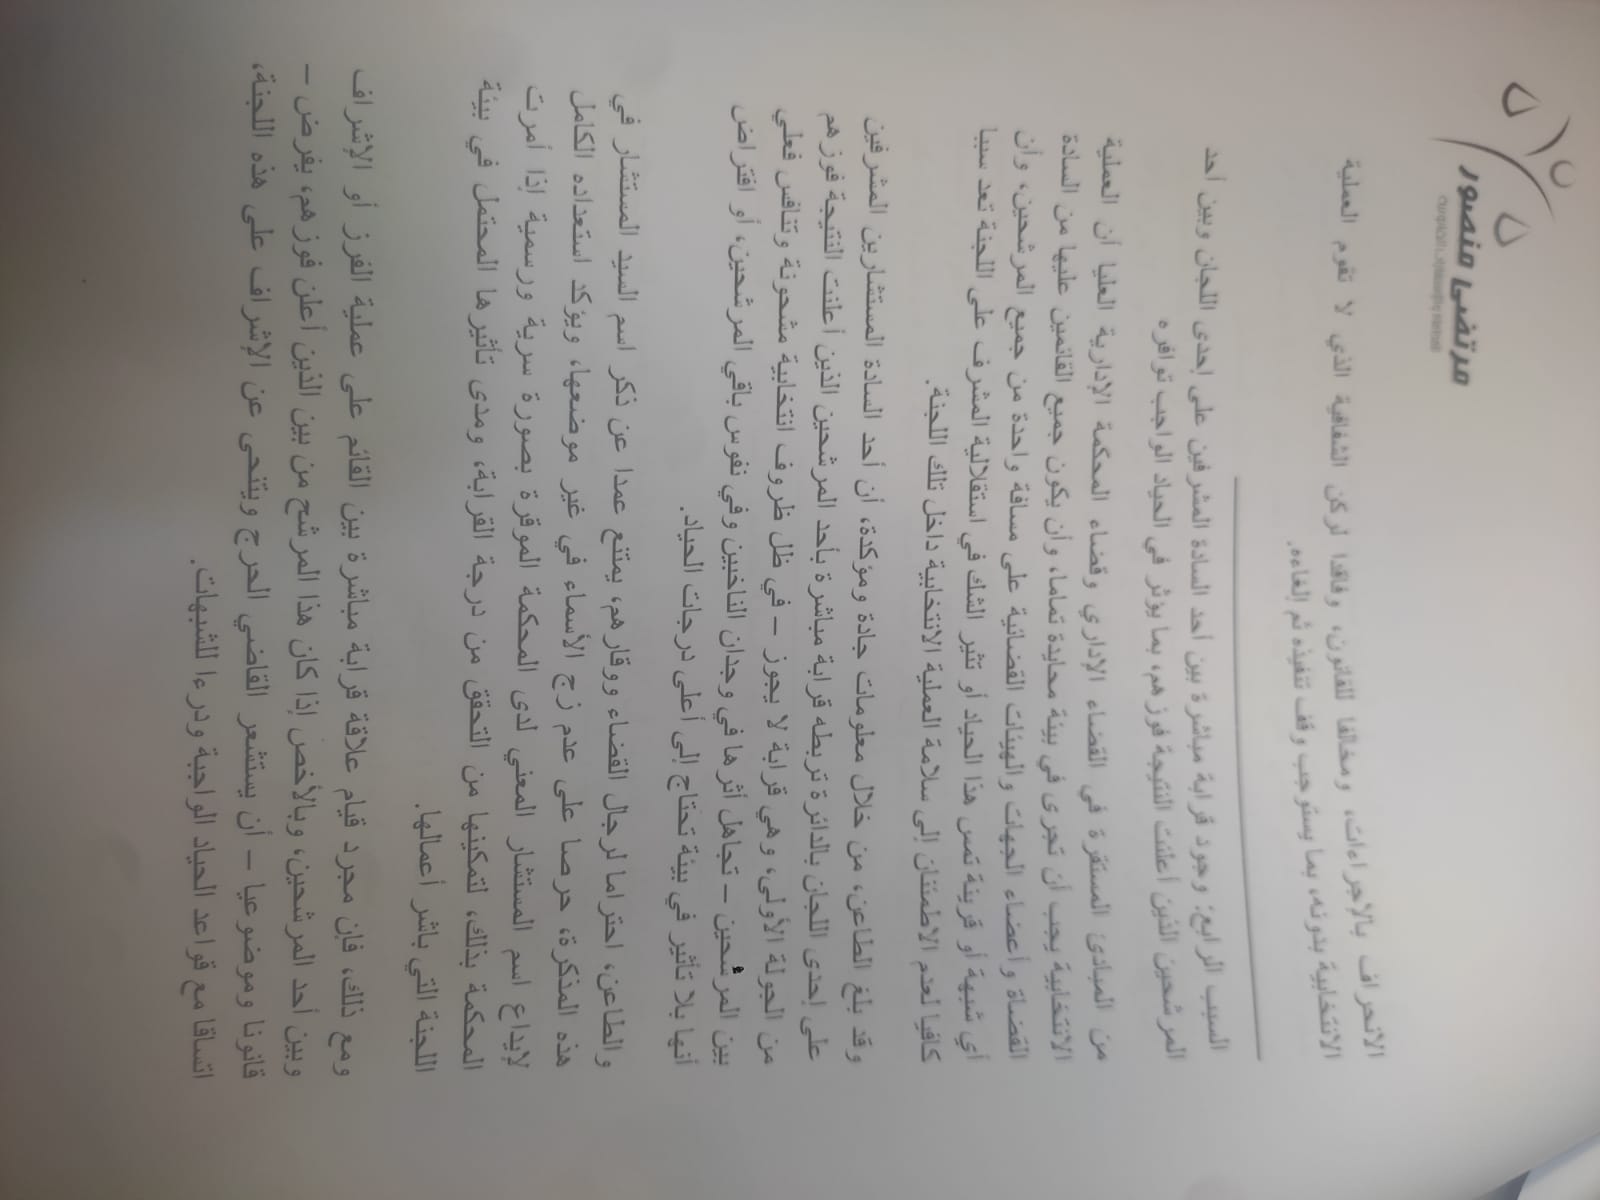 مرتضى منصور
الانحراف بالإجراءات، ومخالفا للقانون، وفاقدا لركن الشفافية الذي لا تقوم العملية
الانتخابية بدونه، بما يستوجب وقف تنفيذه ثم إلغاءه.
السبب الرابع: وجود قرابة مباشرة بين أحد السادة المشرفين على إحدى اللجان وبين أحد
المرشحين الذين أعلنت النتيجة فوزهم، بما يؤثر في الحياد الواجب توافره
من المبادئ المستقرة في القضاء الإداري وقضاء المحكمة الإدارية العليا أن العملية
الانتخابية يجب أن تجرى في بيئة محايدة تماما، وأن يكون جميع القائمين عليها من السادة
القضاة وأعضاء الجهات والهيئات القضائية على مسافة واحدة من جميع المرشحين، وأن
أي شبهة أو قرينة تمس هذا الحياد أو تثير الشك في استقلالية المشرف على اللجنة تعد سببا
كافيا لعدم الاطمئنان إلى سلامة العملية الانتخابية داخل تلك اللجنة.
وقد بلغ الطاعن، من خلال معلومات جادة ومؤكدة، أن أحد السادة المستشارين المشرفين
على إحدى اللجان بالدائرة تربطه قرابة مباشرة بأحد المرشحين الذين أعلنت النتيجة فوزهم
من الجولة الأولى، وهي قرابة لا يجوز – في ظل ظروف انتخابية مشحونة وتنافس فعلي
بين المرشحين – تجاهل أثرها في وجدان الناخبين وفي نفوس باقي المرشحين، أو افتراض
أنها بلا تأثير في بيئة تحتاج إلى أعلى درجات الحياد.
والطاعن، احتراما لرجال القضاء ووقارهم، يمتنع عمدا عن ذكر اسم السيد المستشار في
هذه المذكرة، حرصا على عدم زج الأسماء في غير موضعها، ويؤكد استعداده الكامل
لإيداع اسم المستشار المعني لدى المحكمة الموقرة بصورة سرية ورسمية إذا أمرت
المحكمة بذلك، لتمكينها من التحقق من درجة القرابة، ومدى تأثيرها المحتمل في بيئة
اللجنة التي باشر أعمالها.
ومع ذلك، فإن مجرد قيام علاقة قرابة مباشرة بين القائم على عملية الفرز أو الإشراف
وبين أحد المرشحين، وبالأخص إذا كان هذا المرشح من بين الذين أعلن فوزهم، يفرض –
قانونا وموضوعيا – أن يستشعر القاضي الحرج ويتنحى عن الإشراف على هذه اللجنة،
اتساقا مع قواعد الحياد الواجبة ودرءا للشبهات.